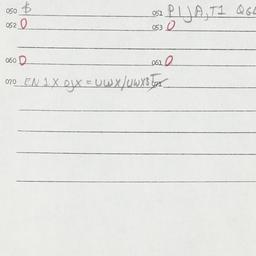 050 $ 051 PIJA,T1 Q6
052 0 053 0
060 0 061 0
070 EN1X DJX = UWX/UWX8